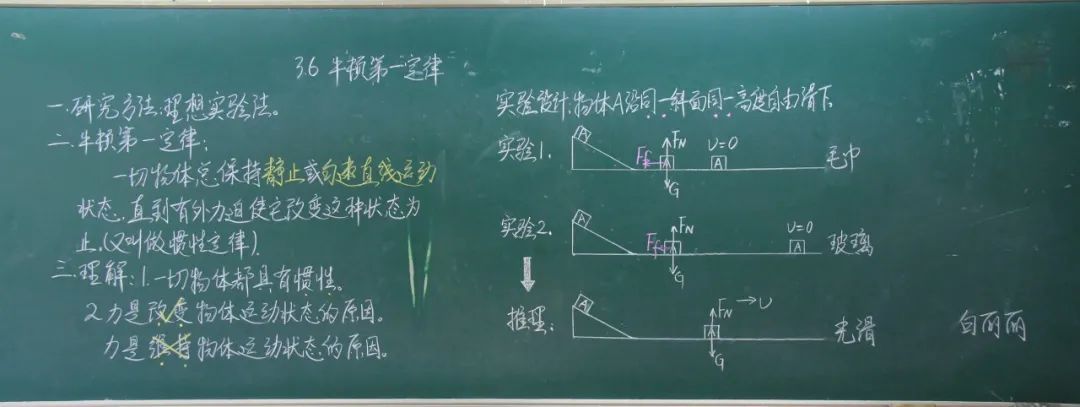 3.6 牛顿第一定律
一.研究方法:理想实验法。
二.牛顿第一定律:
一切物体总保持静止或匀速直线运动
状态,直到有外力迫使它改变这种状态为
止.(又叫做惯性定律).
三.理解:1.一切物体都具有惯性。
2.力是改变物体运动状态的原因。
力是维持物体运动状态的原因。
实验设计:物体A沿同一斜面同一高度自由滑下.
实验1. A Ff FN G υ=0 A 毛巾
实验2. A Ff FN G υ=0 A 玻璃
推理: A FN G υ 光滑
白丽丽